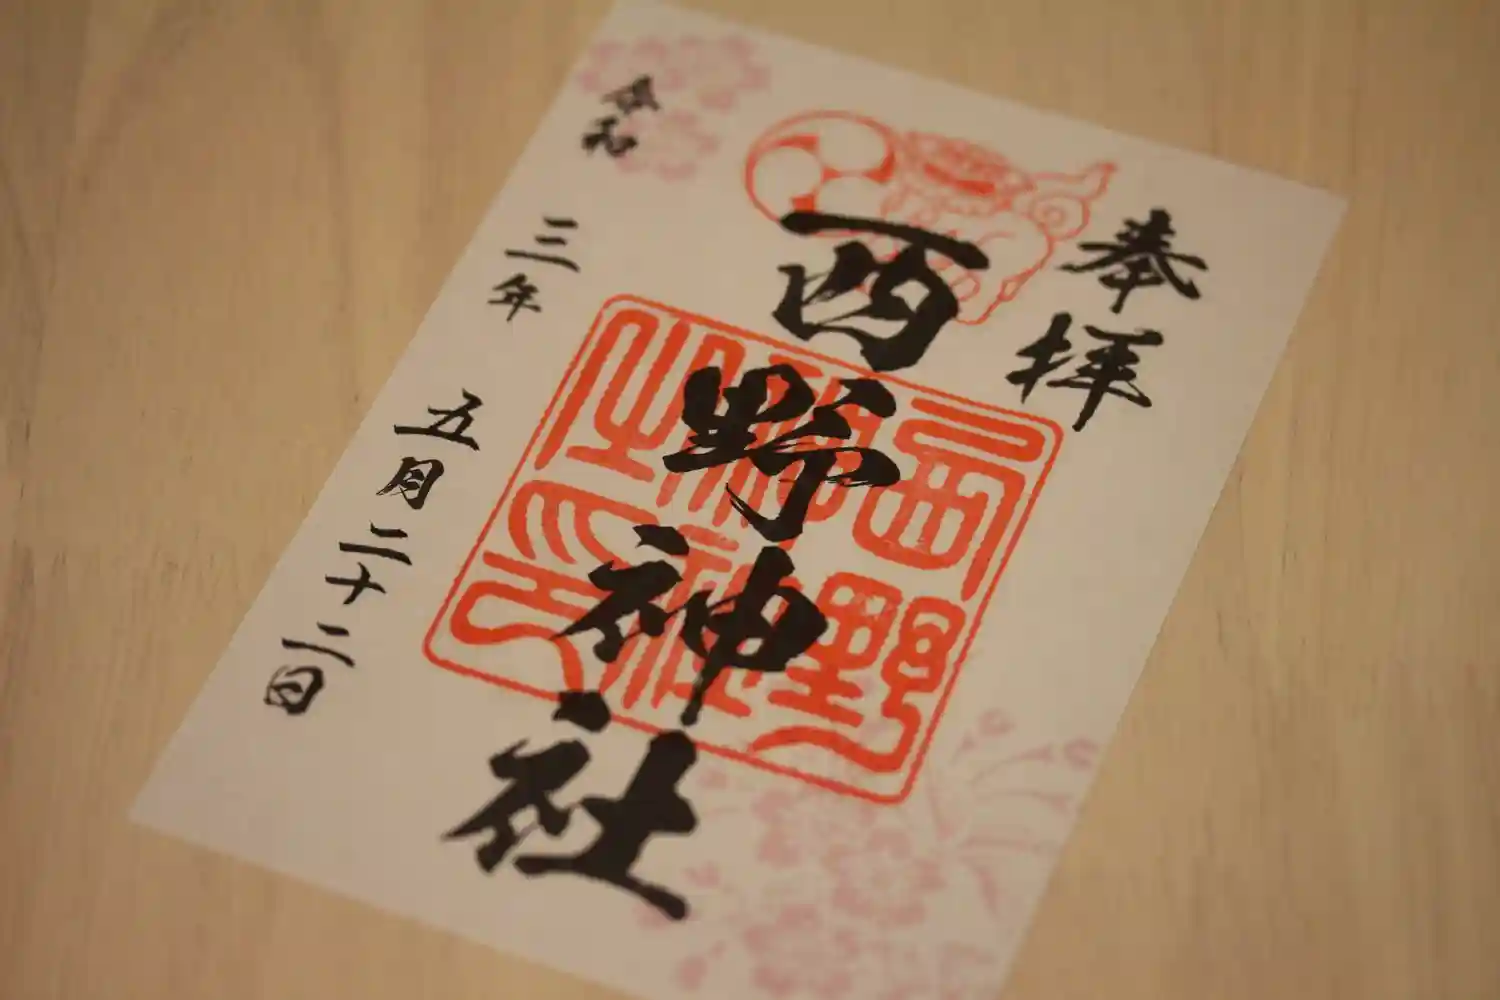 奉拝
西野神社
西野神社之印
令和三年五月二十二日